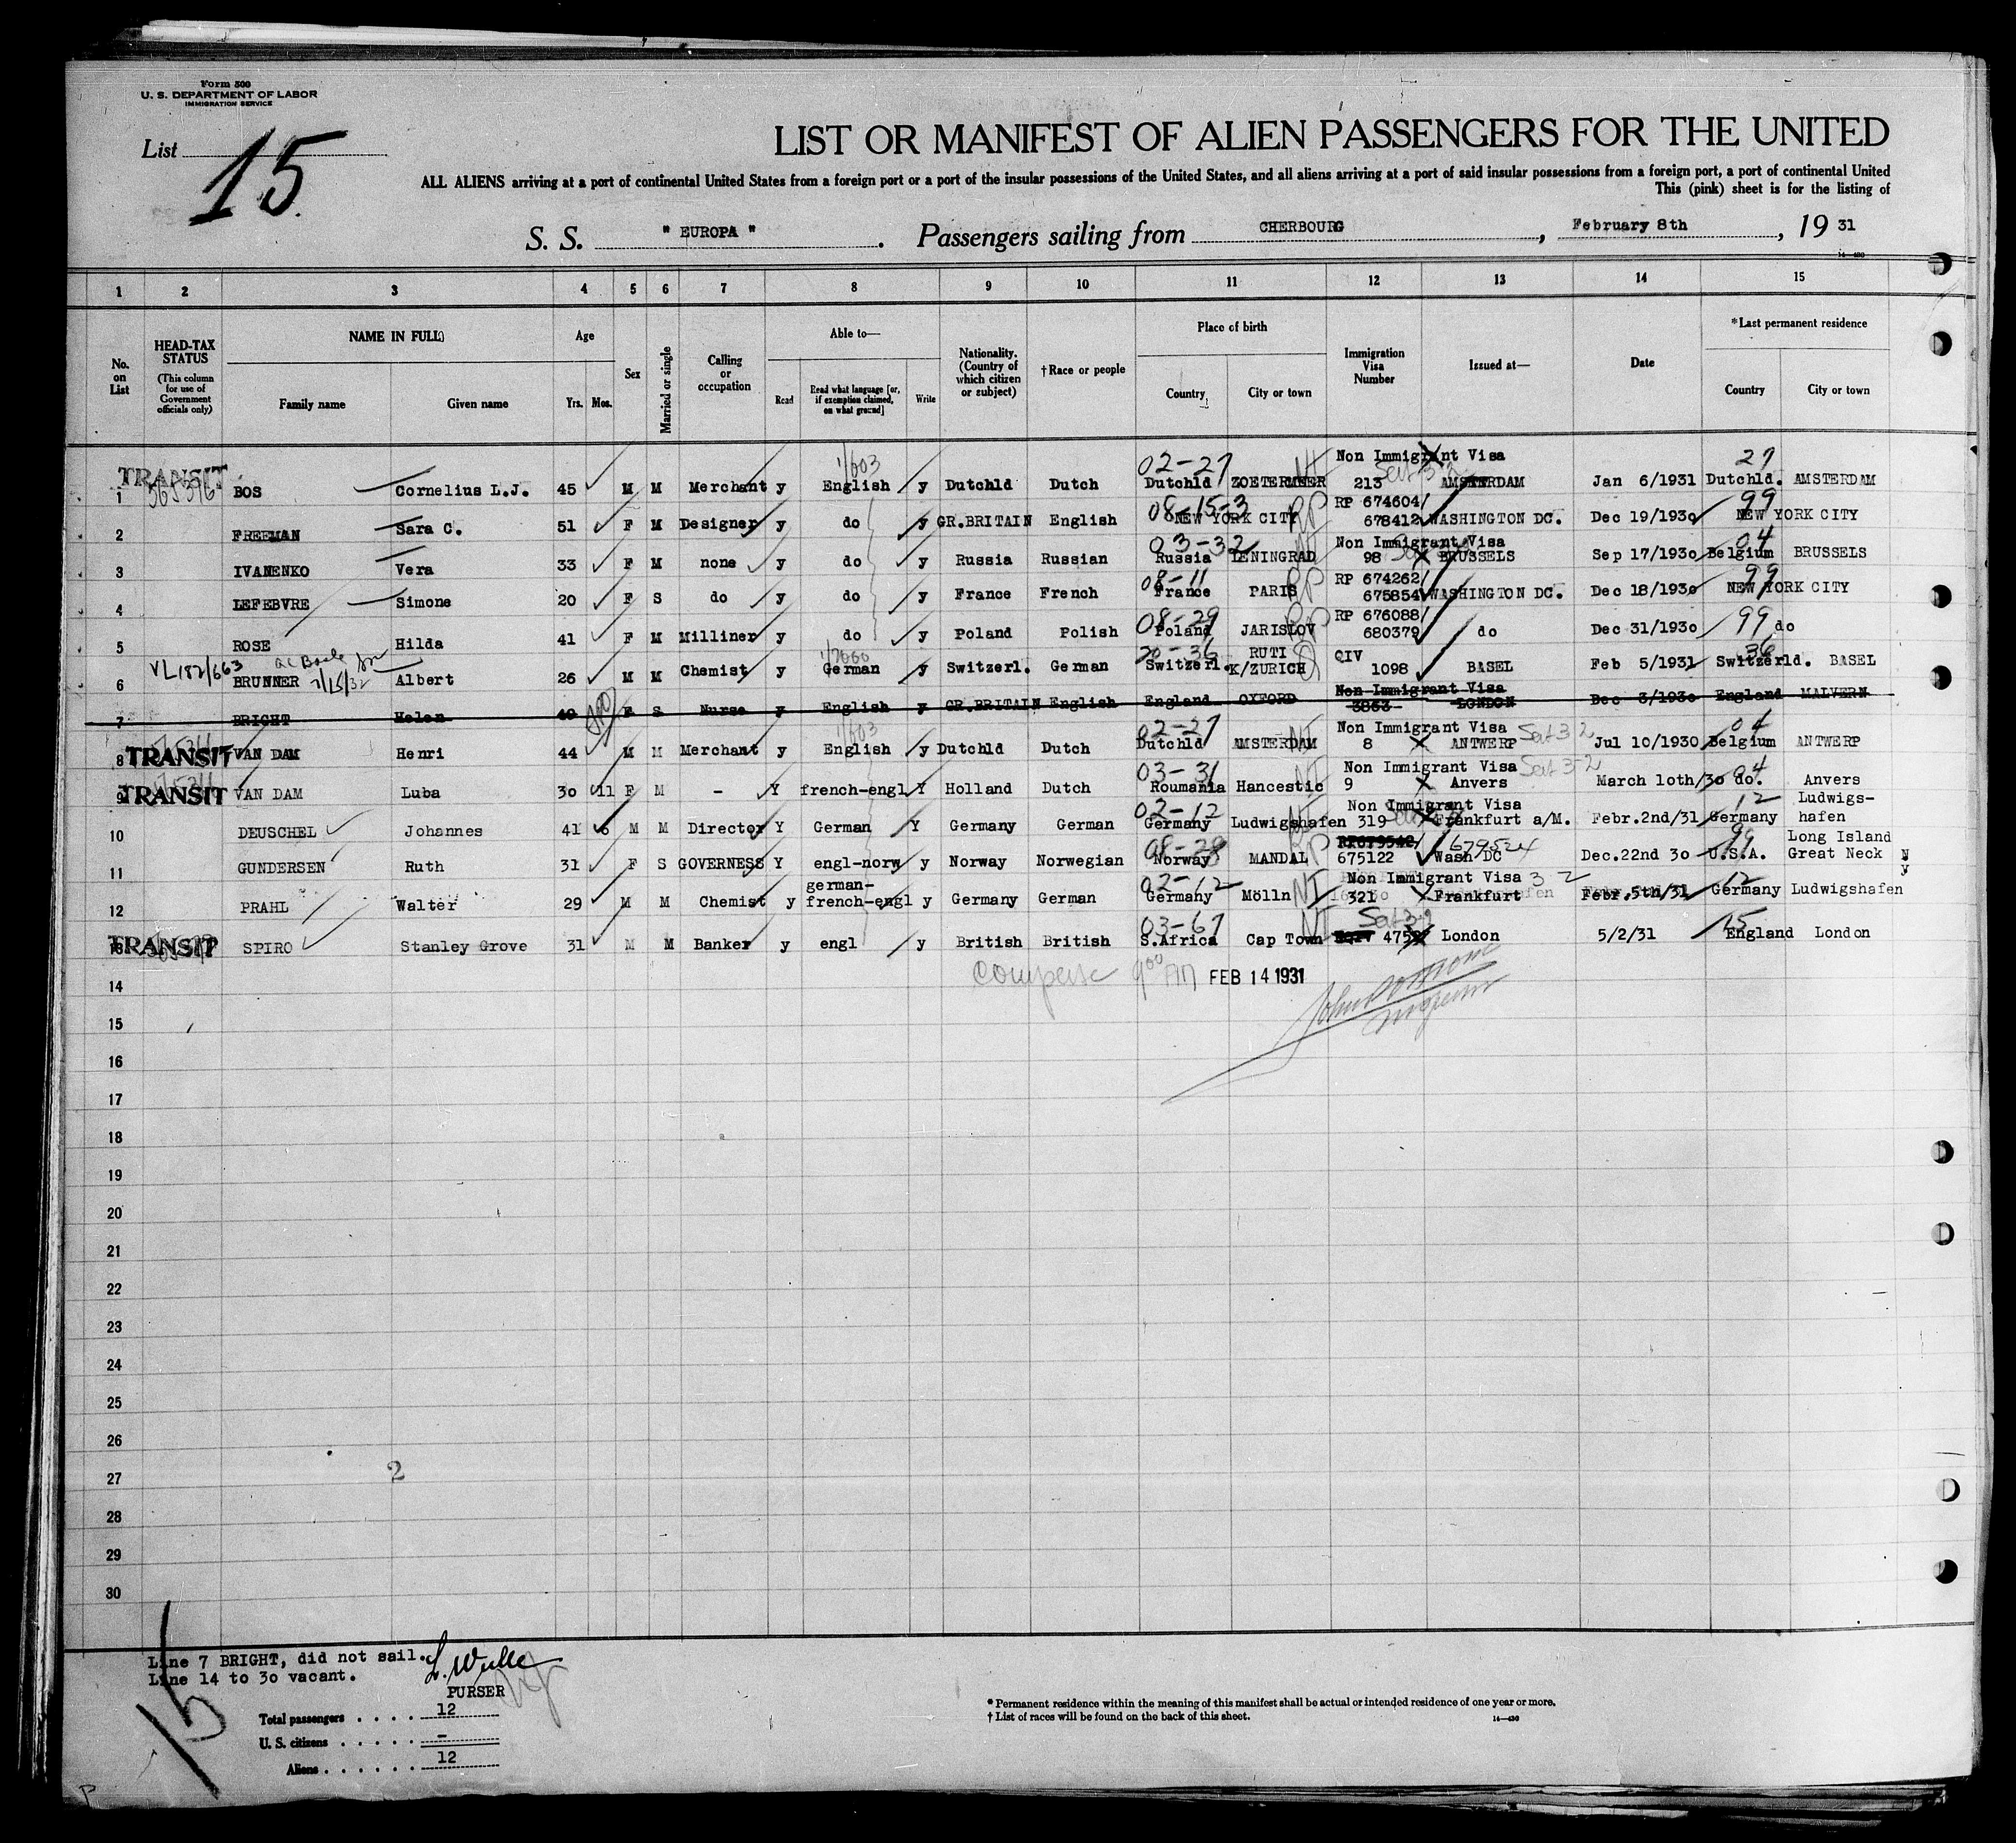 Form 500
U. S. DEPARTMENT OF LABOR
IMMIGRATION SERVICE
List 15
LIST OR MANIFEST OF ALIEN PASSENGERS FOR THE UNITED
ALL ALIENS arriving at a port of continental United States from a foreign port or a port of the insular possessions of the United States, and all aliens arriving at a port of said insular possessions from a foreign port, a port of continental United
This (pink) sheet is for the listing of
S. S. " EUROPA " . Passengers sailing from CHERBOURG , February 8th , 19 31
14—430
1 2 3 4 5 6 7 8 9 10 11 12 13 14 15
No. on List
HEAD-TAX STATUS (This column for use of Government officials only)
NAME IN FULL
Family name Given name
Age
Yrs. Mos.
Sex
Married or single
Calling or occupation
Able to—
Read Read what language [or, if exemption claimed, on what ground] Write
Nationality. (Country of which citizen or subject)
†Race or people
Place of birth
Country City or town
Immigration Visa Number
Issued at—
Date
*Last permanent residence
Country City or town
1/603 02-27 Non Immigrant Visa 27
TRANSIT 1 BOS Cornelius L.J. 45 M M Merchant y English y Dutchld Dutch Dutchld ZOETERMEER NI 213 AMSTERDAM Jan 6/1931 Dutchld. AMSTERDAM
08-15-3 RP 674604/ 99
2 FREEMAN Sara C. 51 F M Designer y do y GR.BRITAIN English NEW YORK CITY RP 678412 WASHINGTON DC. Dec 19/1930 NEW YORK CITY
03-32 Non Immigrant Visa 04
3 IVANENKO Vera 33 F M none y do y Russia Russian Russia LENINGRAD 98 BRUSSELS Sep 17/1930 Belgium BRUSSELS
08-11 RP 674262/ 99
4 LEFEBVRE Simone 20 F S do y do y France French France PARIS RP 675854 WASHINGTON DC. Dec 18/1930 NEW YORK CITY
08-29 RP 676088/ 99
5 ROSE Hilda 41 F M Milliner y do y Poland Polish Poland JARISLOV RP 680379 do Dec 31/1930 do
VL182/663 20-36 RUTI QIV 36
6 BRUNNER 7/15/32 Albert 26 M M Chemist y German y Switzerl. German Switzerl. K/ZURICH Q 1098 BASEL Feb 5/1931 Switzerld. BASEL
Non Immigrant Visa
7 BRIGHT Helen 40 F S Nurse y English y GR.BRITAIN English England OXFORD 3863 LONDON Dec 3/1930 England MALVERN
1/603 02-27 Non Immigrant Visa 04
8 TRANSIT VAN DAM Henri 44 M M Merchant y English y Dutchld Dutch Dutchld AMSTERDAM NI 8 ANTWERP Jul 10/1930 Belgium ANTWERP
03-31 Non Immigrant Visa 04
9 TRANSIT VAN DAM Luba 30 11 F M - Y french-engl Y Holland Dutch Roumania Hancestic NI 9 Anvers March 10th/30 do. Anvers
02-12 Non Immigrant Visa 12 Ludwigs-
10 DEUSCHEL Johannes 41 6 M M Director Y German Y Germany German Germany Ludwigshafen 319 Frankfurt a/M. Febr.2nd/31 Germany hafen
08-28 RP679542/ 679524 99 Long Island
11 GUNDERSEN Ruth 31 F S GOVERNESS Y engl-norw y Norway Norwegian Norway MANDAL RP 675122 Wash DC Dec.22nd 30 U.S.A. Great Neck N Y
german- 02-12 Non Immigrant Visa 3 2 12
12 PRAHL Walter 29 M M Chemist y french-engl y Germany German Germany Mölln NI 321 Frankfurt Febr.5th/31 Germany Ludwigshafen
03-67 NI 15
13 TRANSIT SPIRO Stanley Grove 31 M M Banker y engl y British British S.Africa Cap Town London 5/2/31 England London
14 9 00 AM FEB 14 1931
15
16
17
18
19
20
21
22
23
24
25
26
27
2
28
29
30
Line 7 BRIGHT, did not sail.
Line 14 to 30 vacant.
PURSER
15
Total passengers . . . . 12
U. S. citizens . . . . . -
Aliens . . . . . . 12
* Permanent residence within the meaning of this manifest shall be actual or intended residence of one year or more.
† List of races will be found on the back of this sheet.
14—430